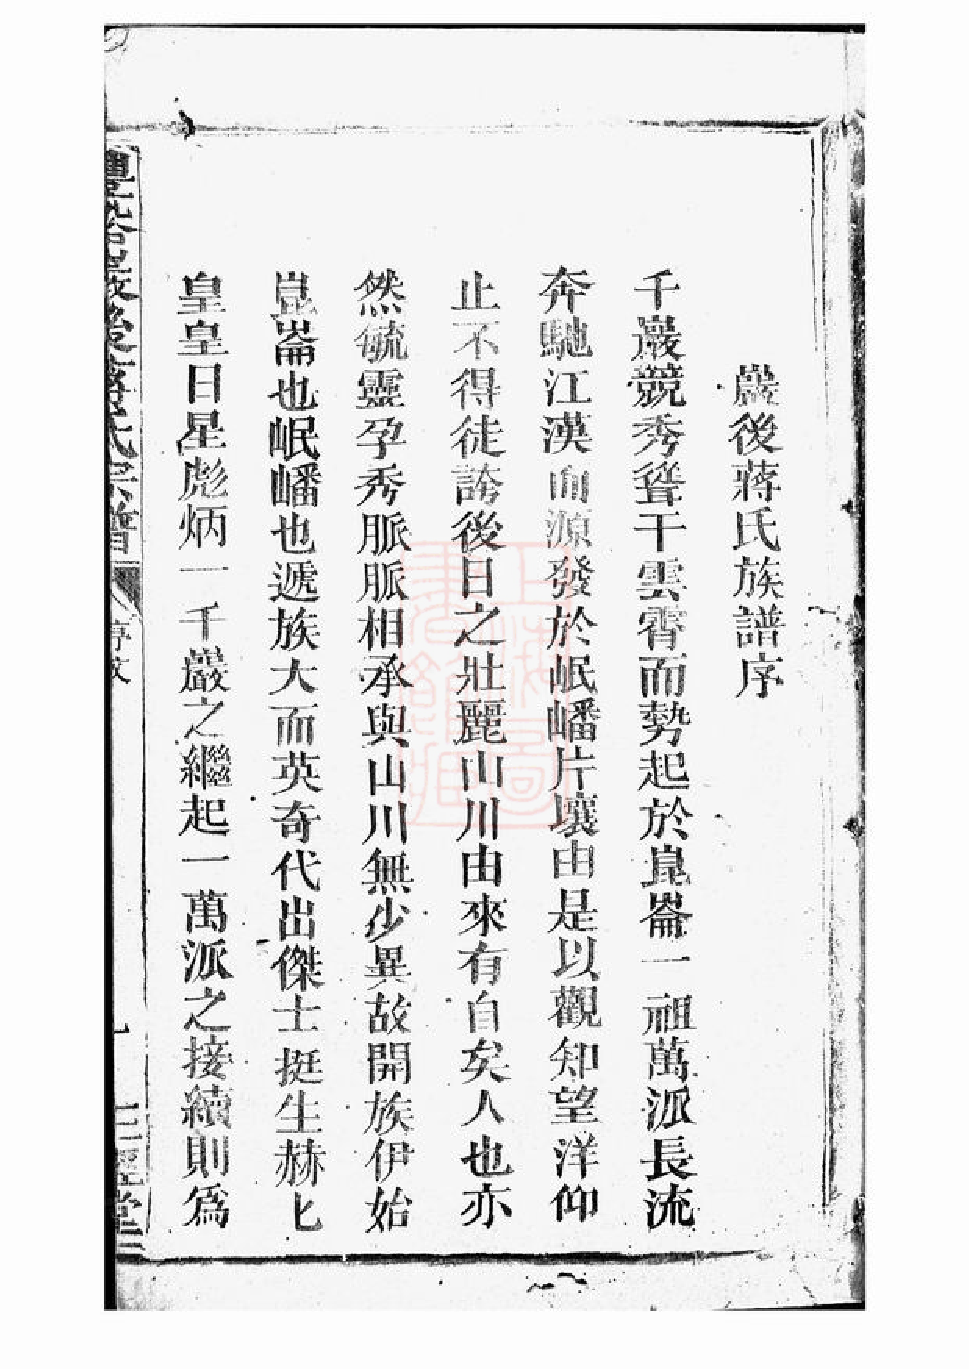 巖後蔣氏族譜序
千巖競秀聳干雲霄而勢起於崑崙一祖萬派長流
奔馳江漢而源發於岷嶓片壤由是以觀知望洋仰
止不得徒誇後日之壯麗山川由來有自矣人也亦
然毓靈孕秀脈脈相承與山川無少異故開族伊始
崑崙也岷嶓也遞族大而英奇代出傑士挺生赫匕
皇皇日星彪炳一千巖之繼起一萬派之接續則爲
巖後蔣氏宗譜
三徑堂
上海圖書館藏